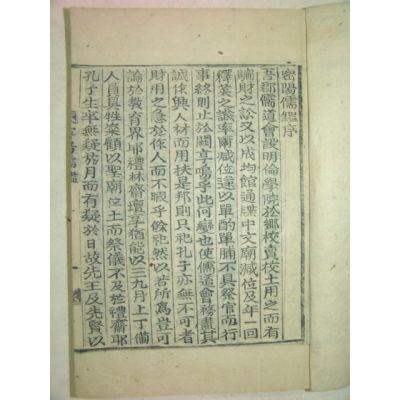 密陽儒鑑序
吾郡儒道會說明倫學院於鄕校賣校土用之而有
騙財之訟又以成均館通牒中文廟減位及年一回
釋菜之議率爾減位遂以單酌單脯不具祭官而行
事終則止於闕享嗚乎此何變也使儒道會務盡其
誠作興人材而用扶是邦則只祀孔子亦無不可者
財用之急於作人而不暇乎儉祀然以若所爲豈可
論於敎育界耶禮林齋壇享猶能以三九月上丁備
人員具牲菜顧以聖廟位土而祭儀不及於禮齋耶
孔子生卒無疑於月而有疑於日故先王及先賢以